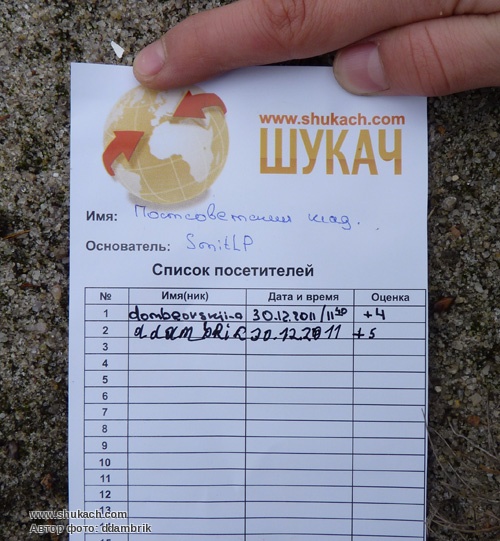 www.shukach.com
ШУКАЧ
Имя: Постсоветский клад.
Основатель: SonitLP
Список посетителей
№ Имя(ник) Дата и время Оценка
1 dombrovskij-a 30.12.2011/11 40 +4
2 ddambrik 30.12.2011 +5
3
4
5
6
7
8
9
10
11
12
13
www.shukach.com
Автор фото: ddambrik